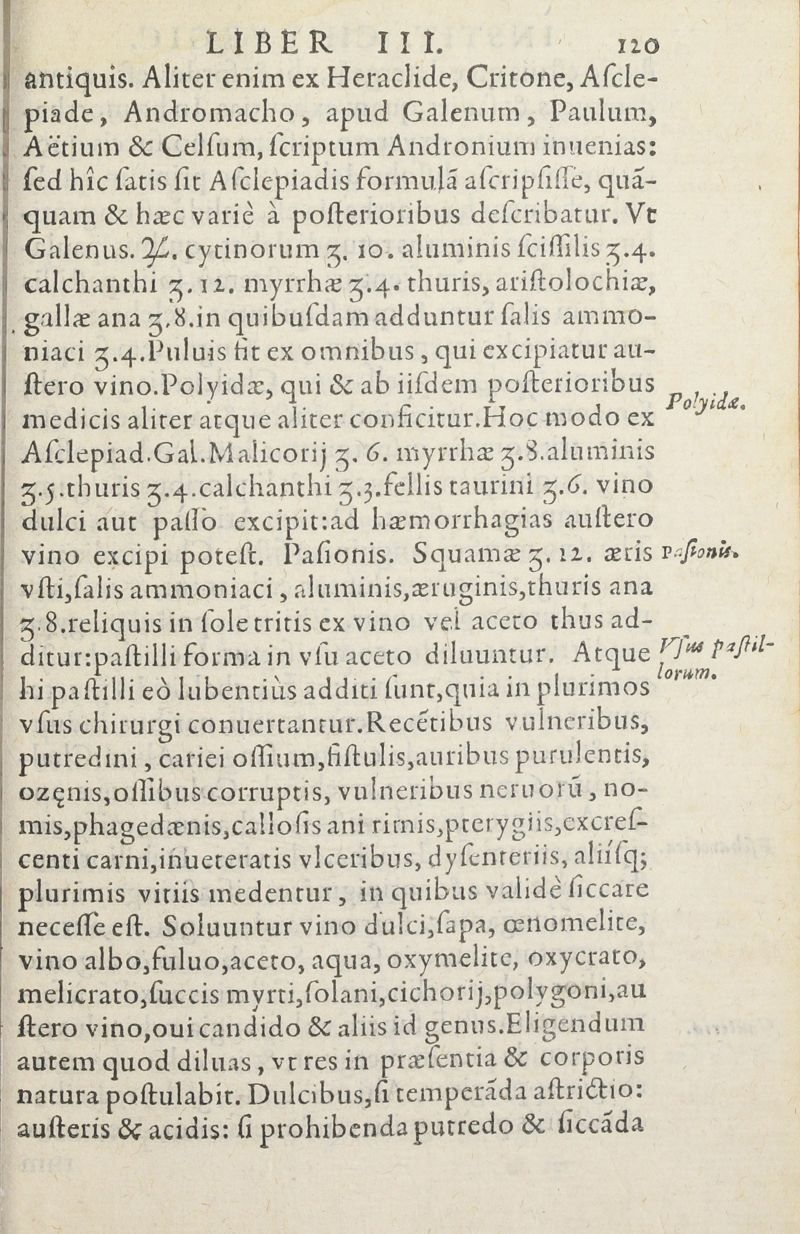 LIBER III. 120
antiquis. Aliter enim ex Heraclide, Critone, Aſcle-
piade, Andromacho, apud Galenum, Paulum,
Aëtium & Celſum, ſcriptum Andronium inuenias:
ſed hîc ſatis ſit Aſclepiadis formulā aſcripſiſſe, quā-
quam & hæc variè à poſterioribus deſcribatur. Vt
Galenus. ♃. cytinorum ʒ. 10. aluminis ſciſſilis ʒ.4.
calchanthi ʒ.12. myrrhæ ʒ.4. thuris, ariſtolochiæ,
gallæ ana ʒ.8.in quibuſdam adduntur ſalis ammo-
niaci ʒ.4.Puluis fit ex omnibus, qui excipiatur au-
ſtero vino.Polyidæ, qui & ab iiſdem poſterioribus
Polyidæ.
medicis aliter atque aliter conficitur.Hoc modo ex
Aſclepiad.Gal.Malicorij ʒ. 6. myrrhæ ʒ.8.aluminis
ʒ.5.thuris ʒ.4.calchanthi ʒ.3.fellis taurini ʒ.6. vino
dulci aut paſſo excipit:ad hæmorrhagias auſtero
vino excipi poteſt. Paſionis. Squamæ ʒ. 12. æris
Paſionis.
vſti,ſalis ammoniaci, aluminis,æruginis,thuris ana
ʒ.8.reliquis in ſole tritis ex vino vel aceto thus ad-
ditur:paſtilli forma in vſu aceto diluuntur. Atque
Vſus paſtil-
lorum.
hi paſtilli eò lubentiùs additi ſunt,quia in plurimos
vſus chirurgi conuertantur.Recētibus vulneribus,
putredini, cariei oſſium,fiſtulis,auribus purulentis,
ozęnis,oſſibus corruptis, vulneribus neruorū, no-
mis,phagedænis,calloſis ani rimis,pterygiis,excreſ-
centi carni,inueteratis vlceribus, dyſenteriis, aliiſq;
plurimis vitiis medentur, in quibus validè ſiccare
neceſſe eſt. Soluuntur vino dulci,ſapa, œnomelite,
vino albo,fuluo,aceto, aqua, oxymelite, oxycrato,
melicrato,ſuccis myrti,ſolani,cichorij,polygoni,au
ſtero vino,oui candido & aliis id genus.Eligendum
autem quod diluas, vt res in præſentia & corporis
natura poſtulabit. Dulcibus,ſi temperāda aſtrictio:
auſteris & acidis: ſi prohibenda putredo & ſiccāda